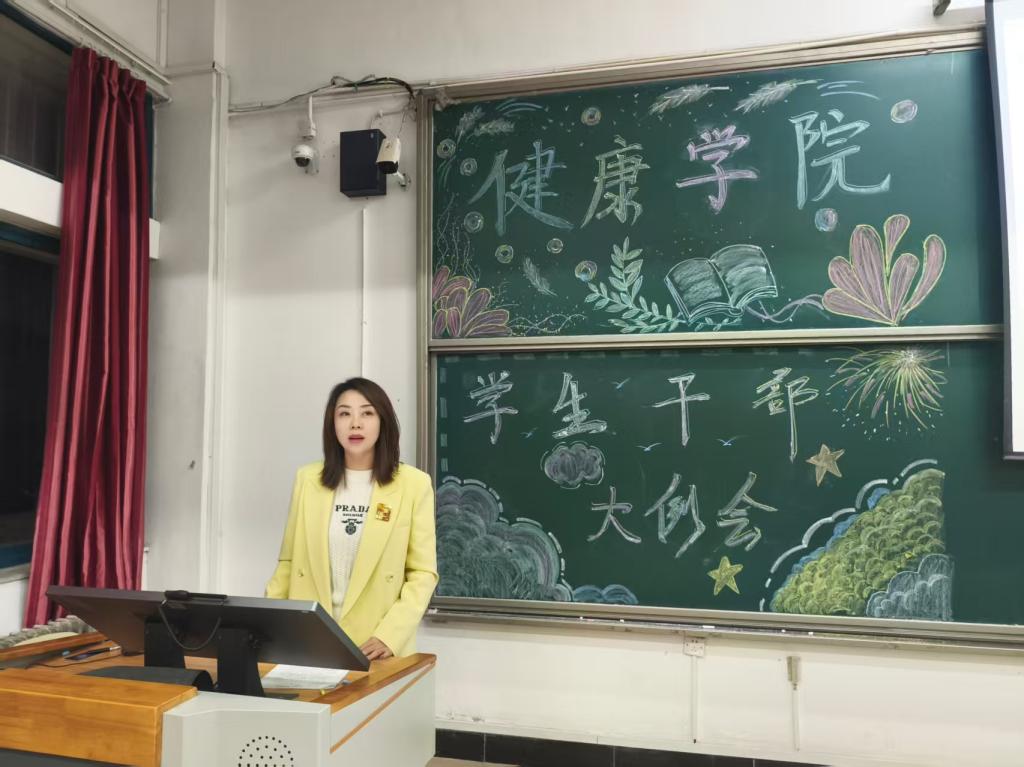 健康学院
学生干部
大例会
PRADA